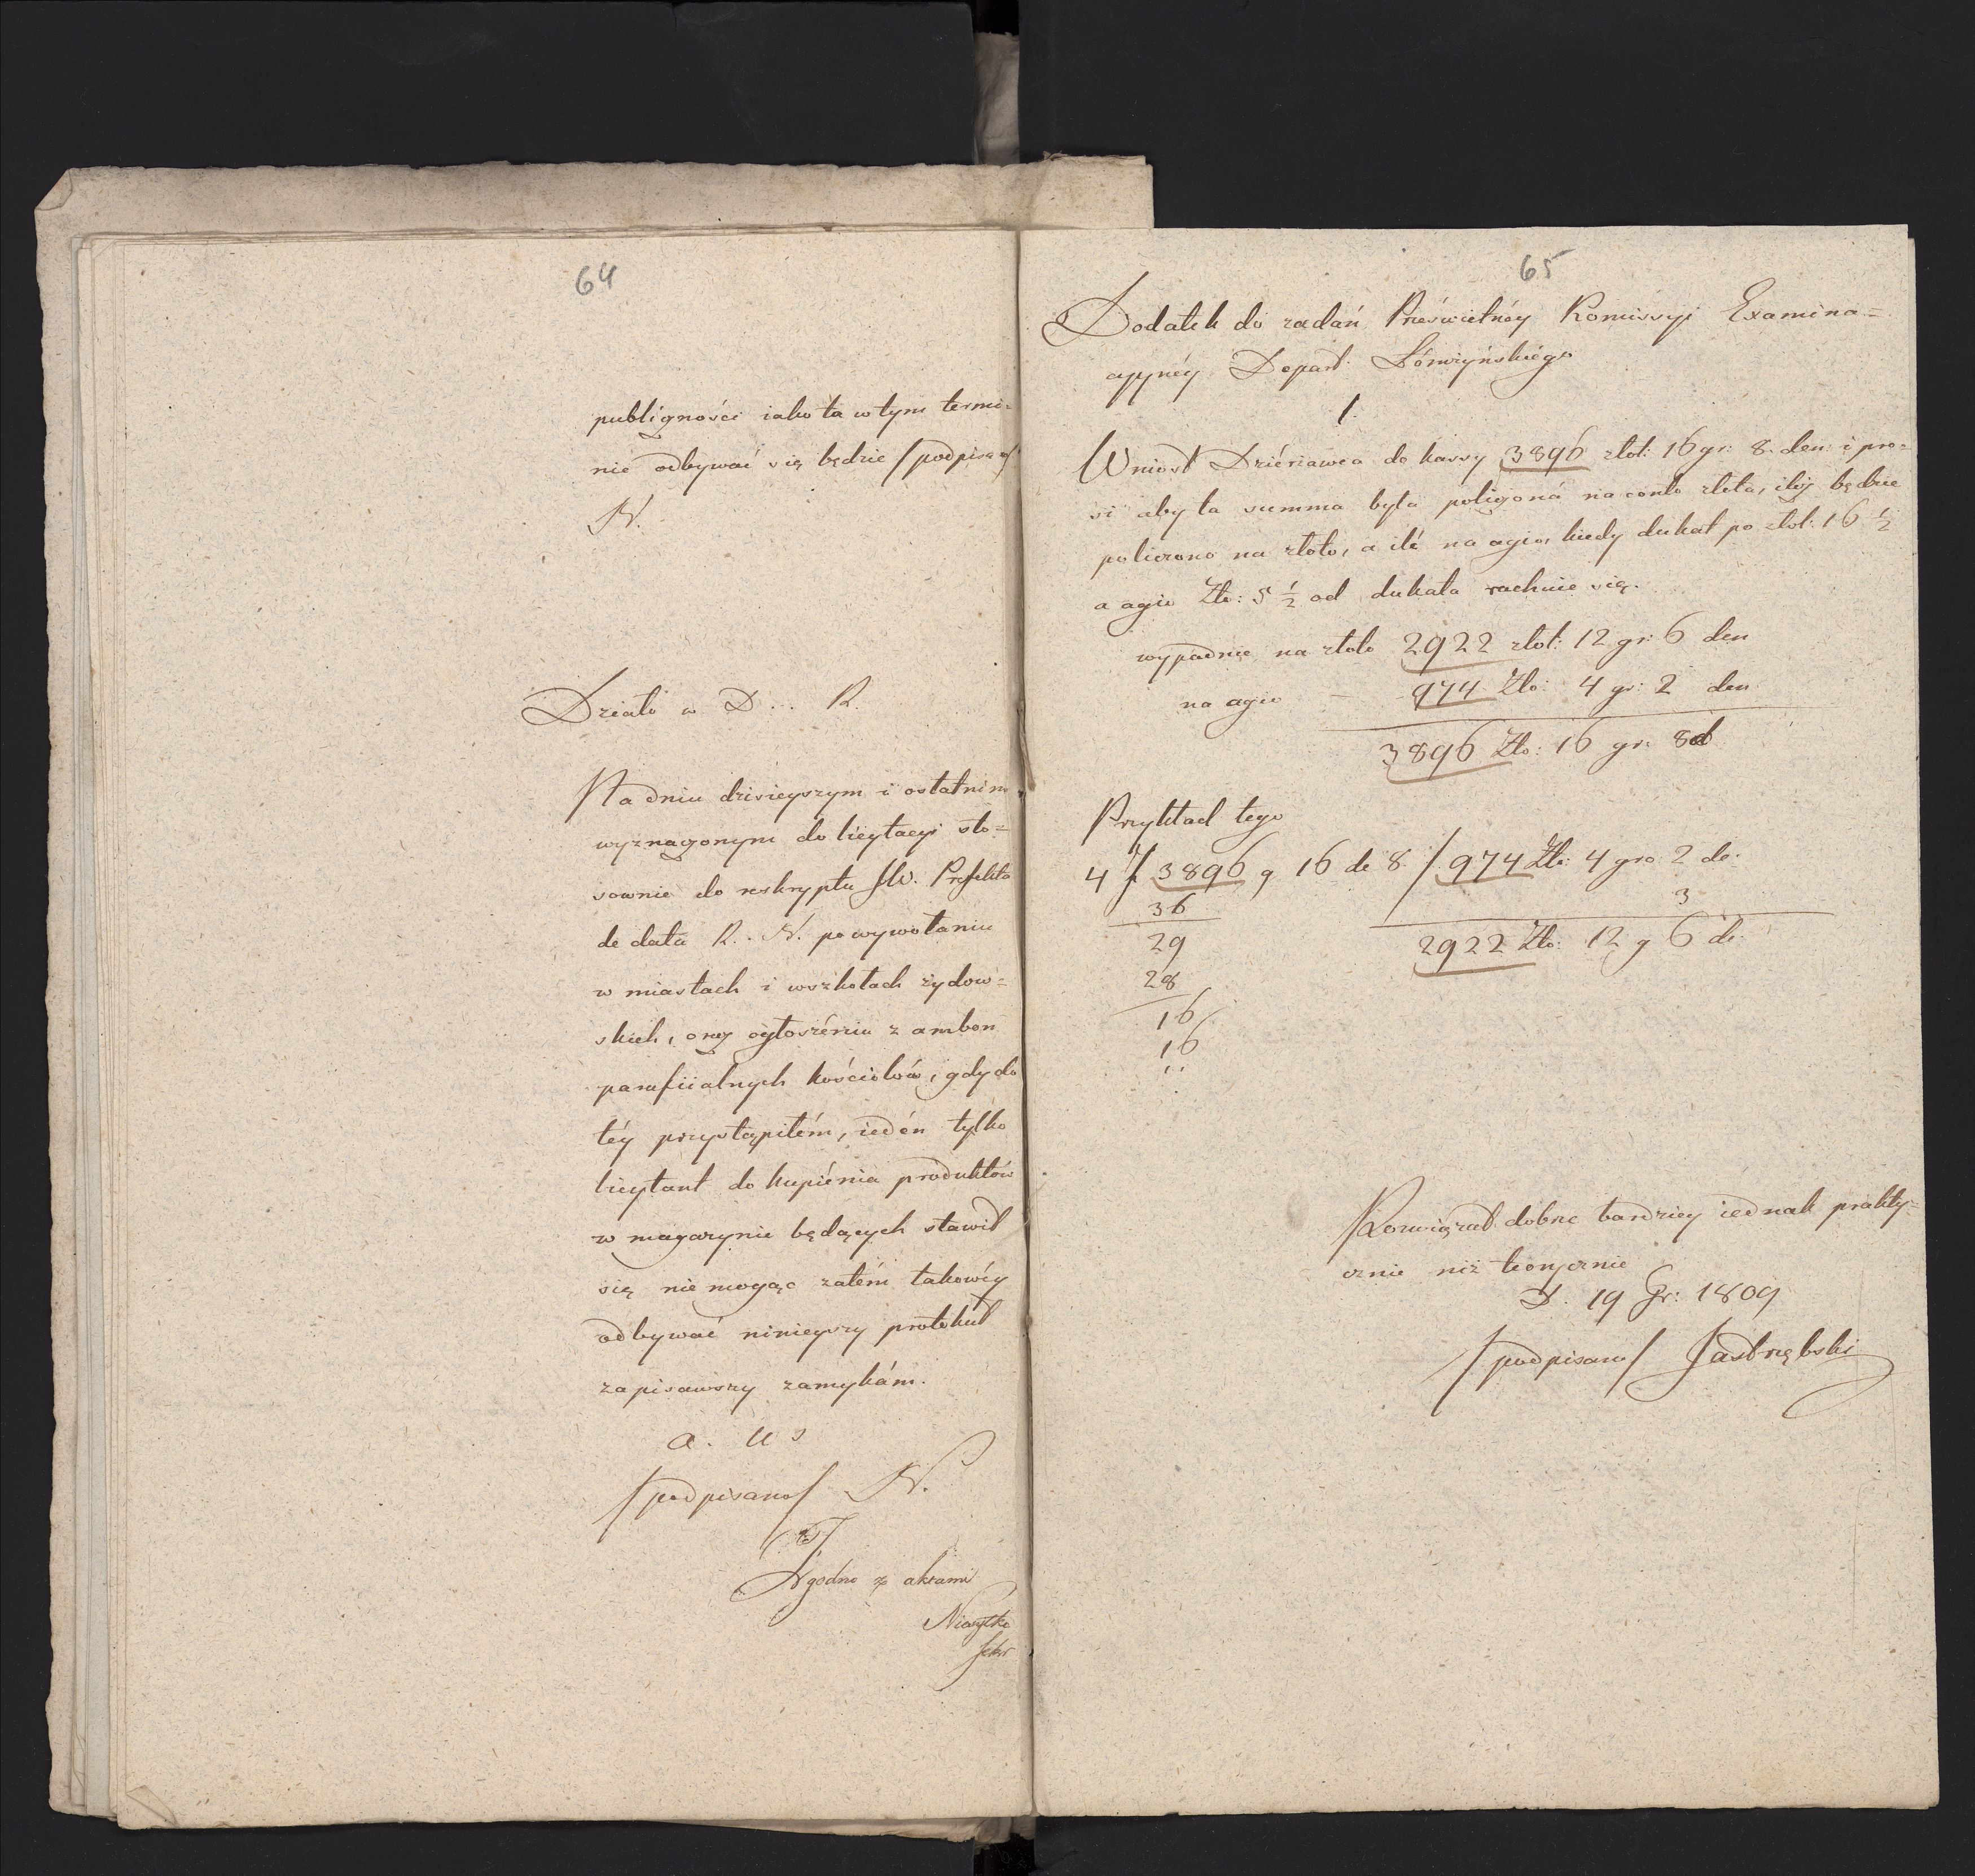 64
publiczności iako ta w tym termi-
nie odbywać się będzie /podpisano/
N.
Działo w D... R.
Na dniu dzisieyszym i ostatnim
wyznaczonym do licytacyi sto=
sownie do reskryptu JW. Prefekta
de data R.. N. po wywołaniu
w miastach i w szkołach żydow=
skich, oraz ogłoszéniu z ambon
parafiialnych kościołów, gdy do
téy przystąpiłém, iedén tylko
licytant do kupiénia produktów
w magazynie będących stawił
się nie mogąc zatém takowéy
odbywać ninieyszy protokuł
zapisawszy zamykám.
a. u s
/podpisano/ N.
Zgodno z aktami
Sekr
65
Dodatek do zadań Prześwietnéy Komissyi Examina=
cyynéy Depart. Łómżyńskiégo
1.
Wniosł Dziérżawca do kassy 3896 złot: 16 gr: 8. den: i pro=
si aby ta summa była policzoná na conto złota, iléż będzie
policzono na złoto, a ilé na agio, kiedy dukat po złot: 16 ½
a agio Zło: 5 ½ od dukata rachuie się.
wypadnie na złoto 2922 złot: 12 gr: 6 den
na agio — 974 Zło: 4 gr: 2 den
3896 Zło: 16 gr: 8 d
Przykład tego
4 / 3896 g 16 de 8 / 974 Zło: 4 gro 2 de:
36 3
29 2922 Zło: 12 g 6 de:
28
16
16
..
Rozwiązał dobrze bardziey iednak prakty=
cznie niż teorycznie
D. 19 Gr: 1809
/podpisano/ Jastrzębski